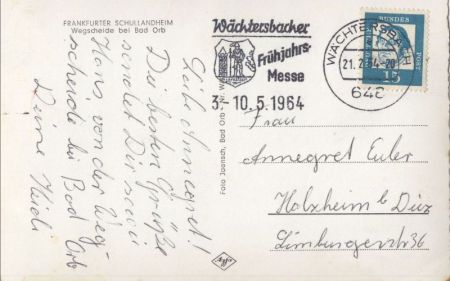 FRANKFURTER SCHULLANDHEIM
Wegscheide bei Bad Orb
Liebe Annegret!
Die besten Grüße
sendet Dir nun
Hans von der Weg-
scheide bei Bad Orb
Deine Heidi
Foto Jaensch, Bad Orb
Agfa
Wächtersbacher
Frühjahrs-
Messe
3.-10.5.1964
WÄCHTERSBACH
648
BUNDES
15
Frau
Annegret Euler
Holzheim b Diez
Limburgerstr 36